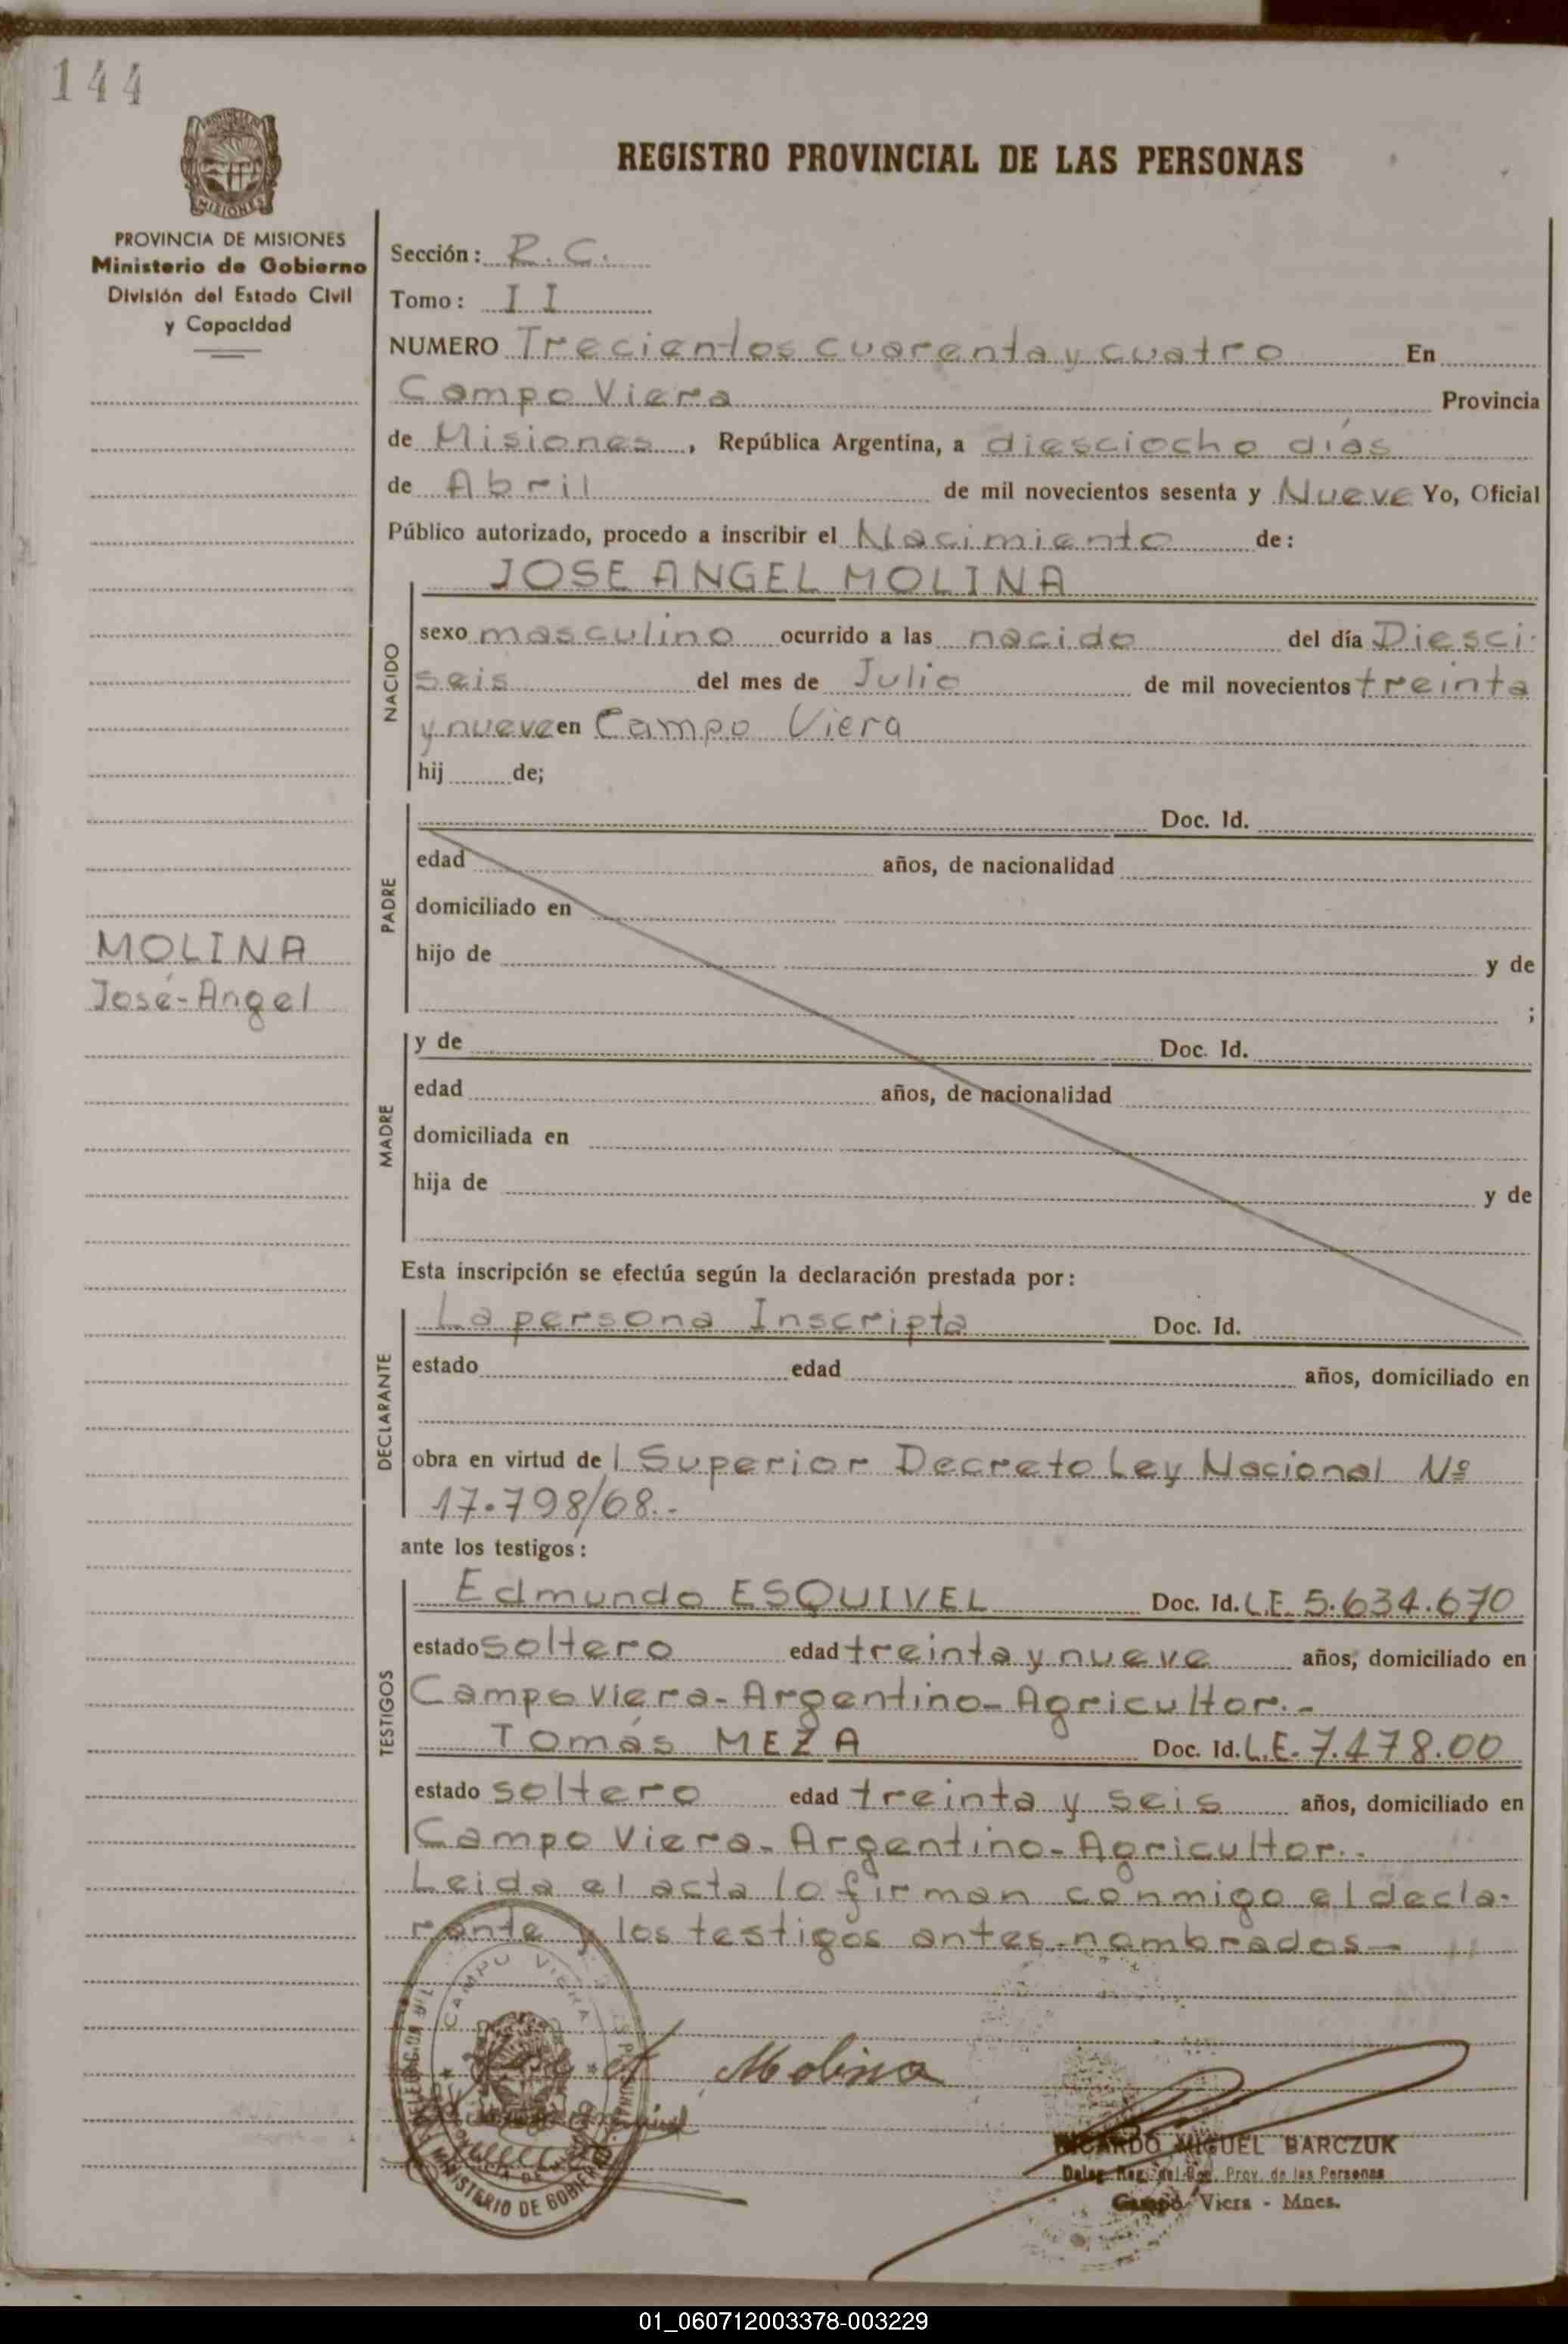 144
MISIONES
PROVINCIA DE MISIONES
Ministerio de Gobierno
División del Estado Civil
y Capacidad
MOLINA
José-Angel
REGISTRO PROVINCIAL DE LAS PERSONAS
Sección: R.C.
Tomo: II
NUMERO Trecientos cuarenta y cuatro En
Campo Viera Provincia
de Misiones, República Argentina, a diesciocho días
de Abril de mil novecientos sesenta y Nueve Yo, Oficial
Público autorizado, procedo a inscribir el Nacimiento de:
NACIDO
JOSE ANGEL MOLINA
sexo masculino ocurrido a las nacido del día Diesci-
seis del mes de Julio de mil novecientos treinta
y nueve en Campo Viera
hij de;
PADRE
Doc. Id.
edad años, de nacionalidad
domiciliado en
hijo de y de
;
MADRE
y de Doc. Id.
edad años, de nacionalidad
domiciliada en
hija de y de
Esta inscripción se efectúa según la declaración prestada por:
DECLARANTE
La persona Inscripta Doc. Id.
estado edad años, domiciliado en
obra en virtud de l Superior Decreto Ley Nacional Nº
17.798/68.-
ante los testigos:
TESTIGOS
Edmundo ESQUIVEL Doc. Id. L.E. 5.634.670
estado soltero edad treinta y nueve años, domiciliado en
Campo Viera-Argentino-Agricultor.-
Tomás MEZA Doc. Id. L.E. 7.478.00
estado soltero edad treinta y seis años, domiciliado en
Campo Viera-Argentino-Agricultor.-
Leida el acta lo firman conmigo el decla-
rante y los testigos antes nombrados-
CAMPO VIERA
MINISTERIO DE GOBIERNO
Molina
RICARDO MIGUEL BARCZUK
Deleg. Reg. del Reg. Prov. de las Personas
Campo Viera - Mnes.
01_060712003378-003229